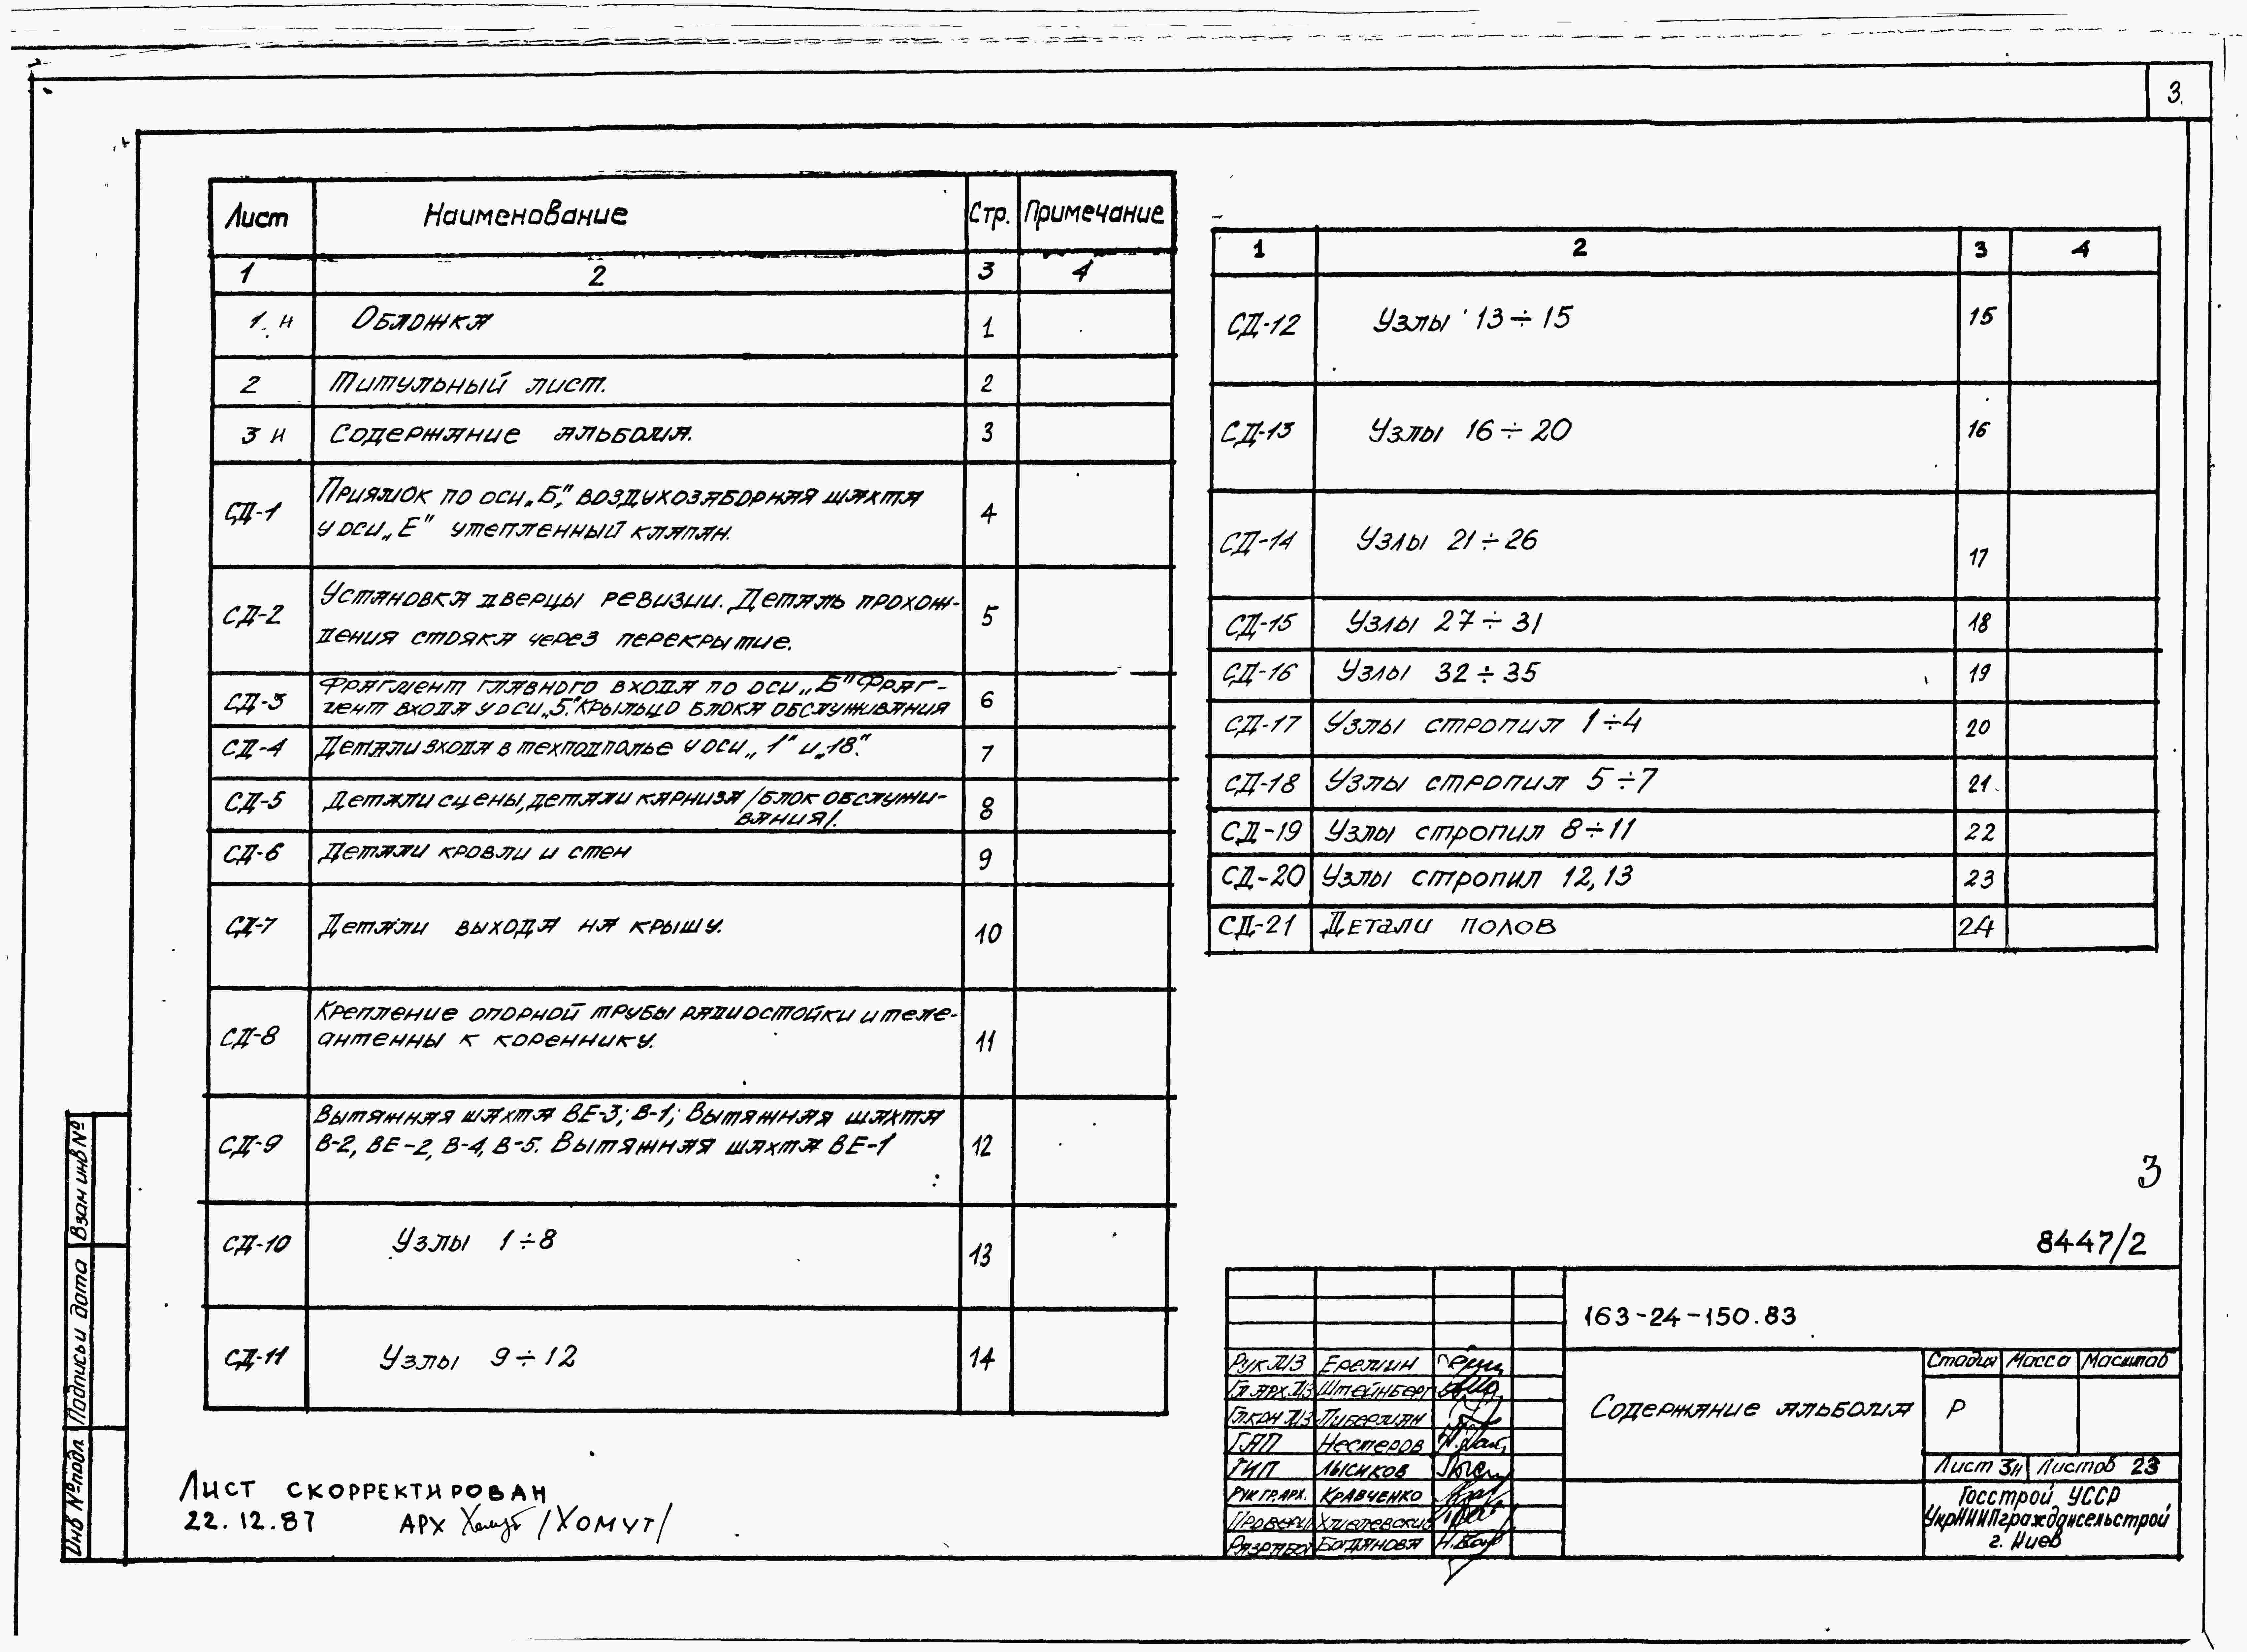 3.
Лист Наименование Стр. Примечание
1 2 3 4
1 н Обложка 1
2 Титульный лист. 2
3 н Содержание альбома. 3
СД-1 Приямок по оси „Б", воздухозаборная шахта
у оси „Е" утепленный клапан. 4
СД-2 Установка дверцы ревизии. Деталь прохож-
дения стояка через перекрытие. 5
СД-3 Фрагмент главного входа по оси „Б" Фраг-
мент входа у оси „5". Крыльцо блока обслуживания 6
СД-4 Детали входа в техподполье у оси „1" и „18". 7
СД-5 Детали сцены, детали карниза /блок обслужи-
вания/. 8
СД-6 Детали кровли и стен 9
СД-7 Детали выхода на крышу. 10
СД-8 Крепление опорной трубы радиостойки и теле-
антенны к кореннику. 11
СД-9 Вытяжная шахта ВЕ-3; В-1; Вытяжная шахта
В-2, ВЕ-2, В-4, В-5. Вытяжная шахта ВЕ-1 12
СД-10 Узлы 1÷8 13
СД-11 Узлы 9÷12 14
1 2 3 4
СД-12 Узлы 13÷15 15
СД-13 Узлы 16÷20 16
СД-14 Узлы 21÷26 17
СД-15 Узлы 27÷31 18
СД-16 Узлы 32÷35 19
СД-17 Узлы стропил 1÷4 20
СД-18 Узлы стропил 5÷7 21
СД-19 Узлы стропил 8÷11 22
СД-20 Узлы стропил 12, 13 23
СД-21 Детали полов 24
3
8447/2
163-24-150.83
Рук М3 Еремин
Гл арх М3 Штейнберг
Гл кон М3 Либерман
ГАП Нестеров
ГИП Лысиков
Рук гр. арх. Кравченко
Провери Хмелевский
Разработ Богданова
Содержание альбома
Стадия Масса Масштаб
Р
Лист 3н Листов 23
Госстрой УССР
УкрНИИПграждансельстрой
г. Киев
Лист скорректирован
22.12.87 Арх /Хомут/
Взам инв №
Подпись и дата
Инв № подл